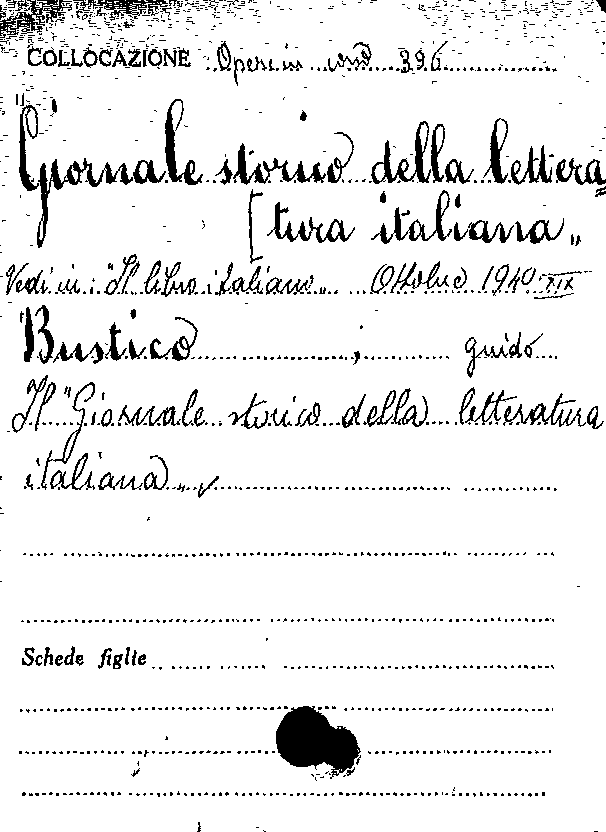 COLLOCAZIONE Opere in cond 396
"Giornale storico della lettera=
[tura italiana„
Vedi in: "Il libro italiano„ Ottobre 1940 XIX
Bustico ; guido
Il "Giornale storico della letteratura
italiana„
Schede figlie